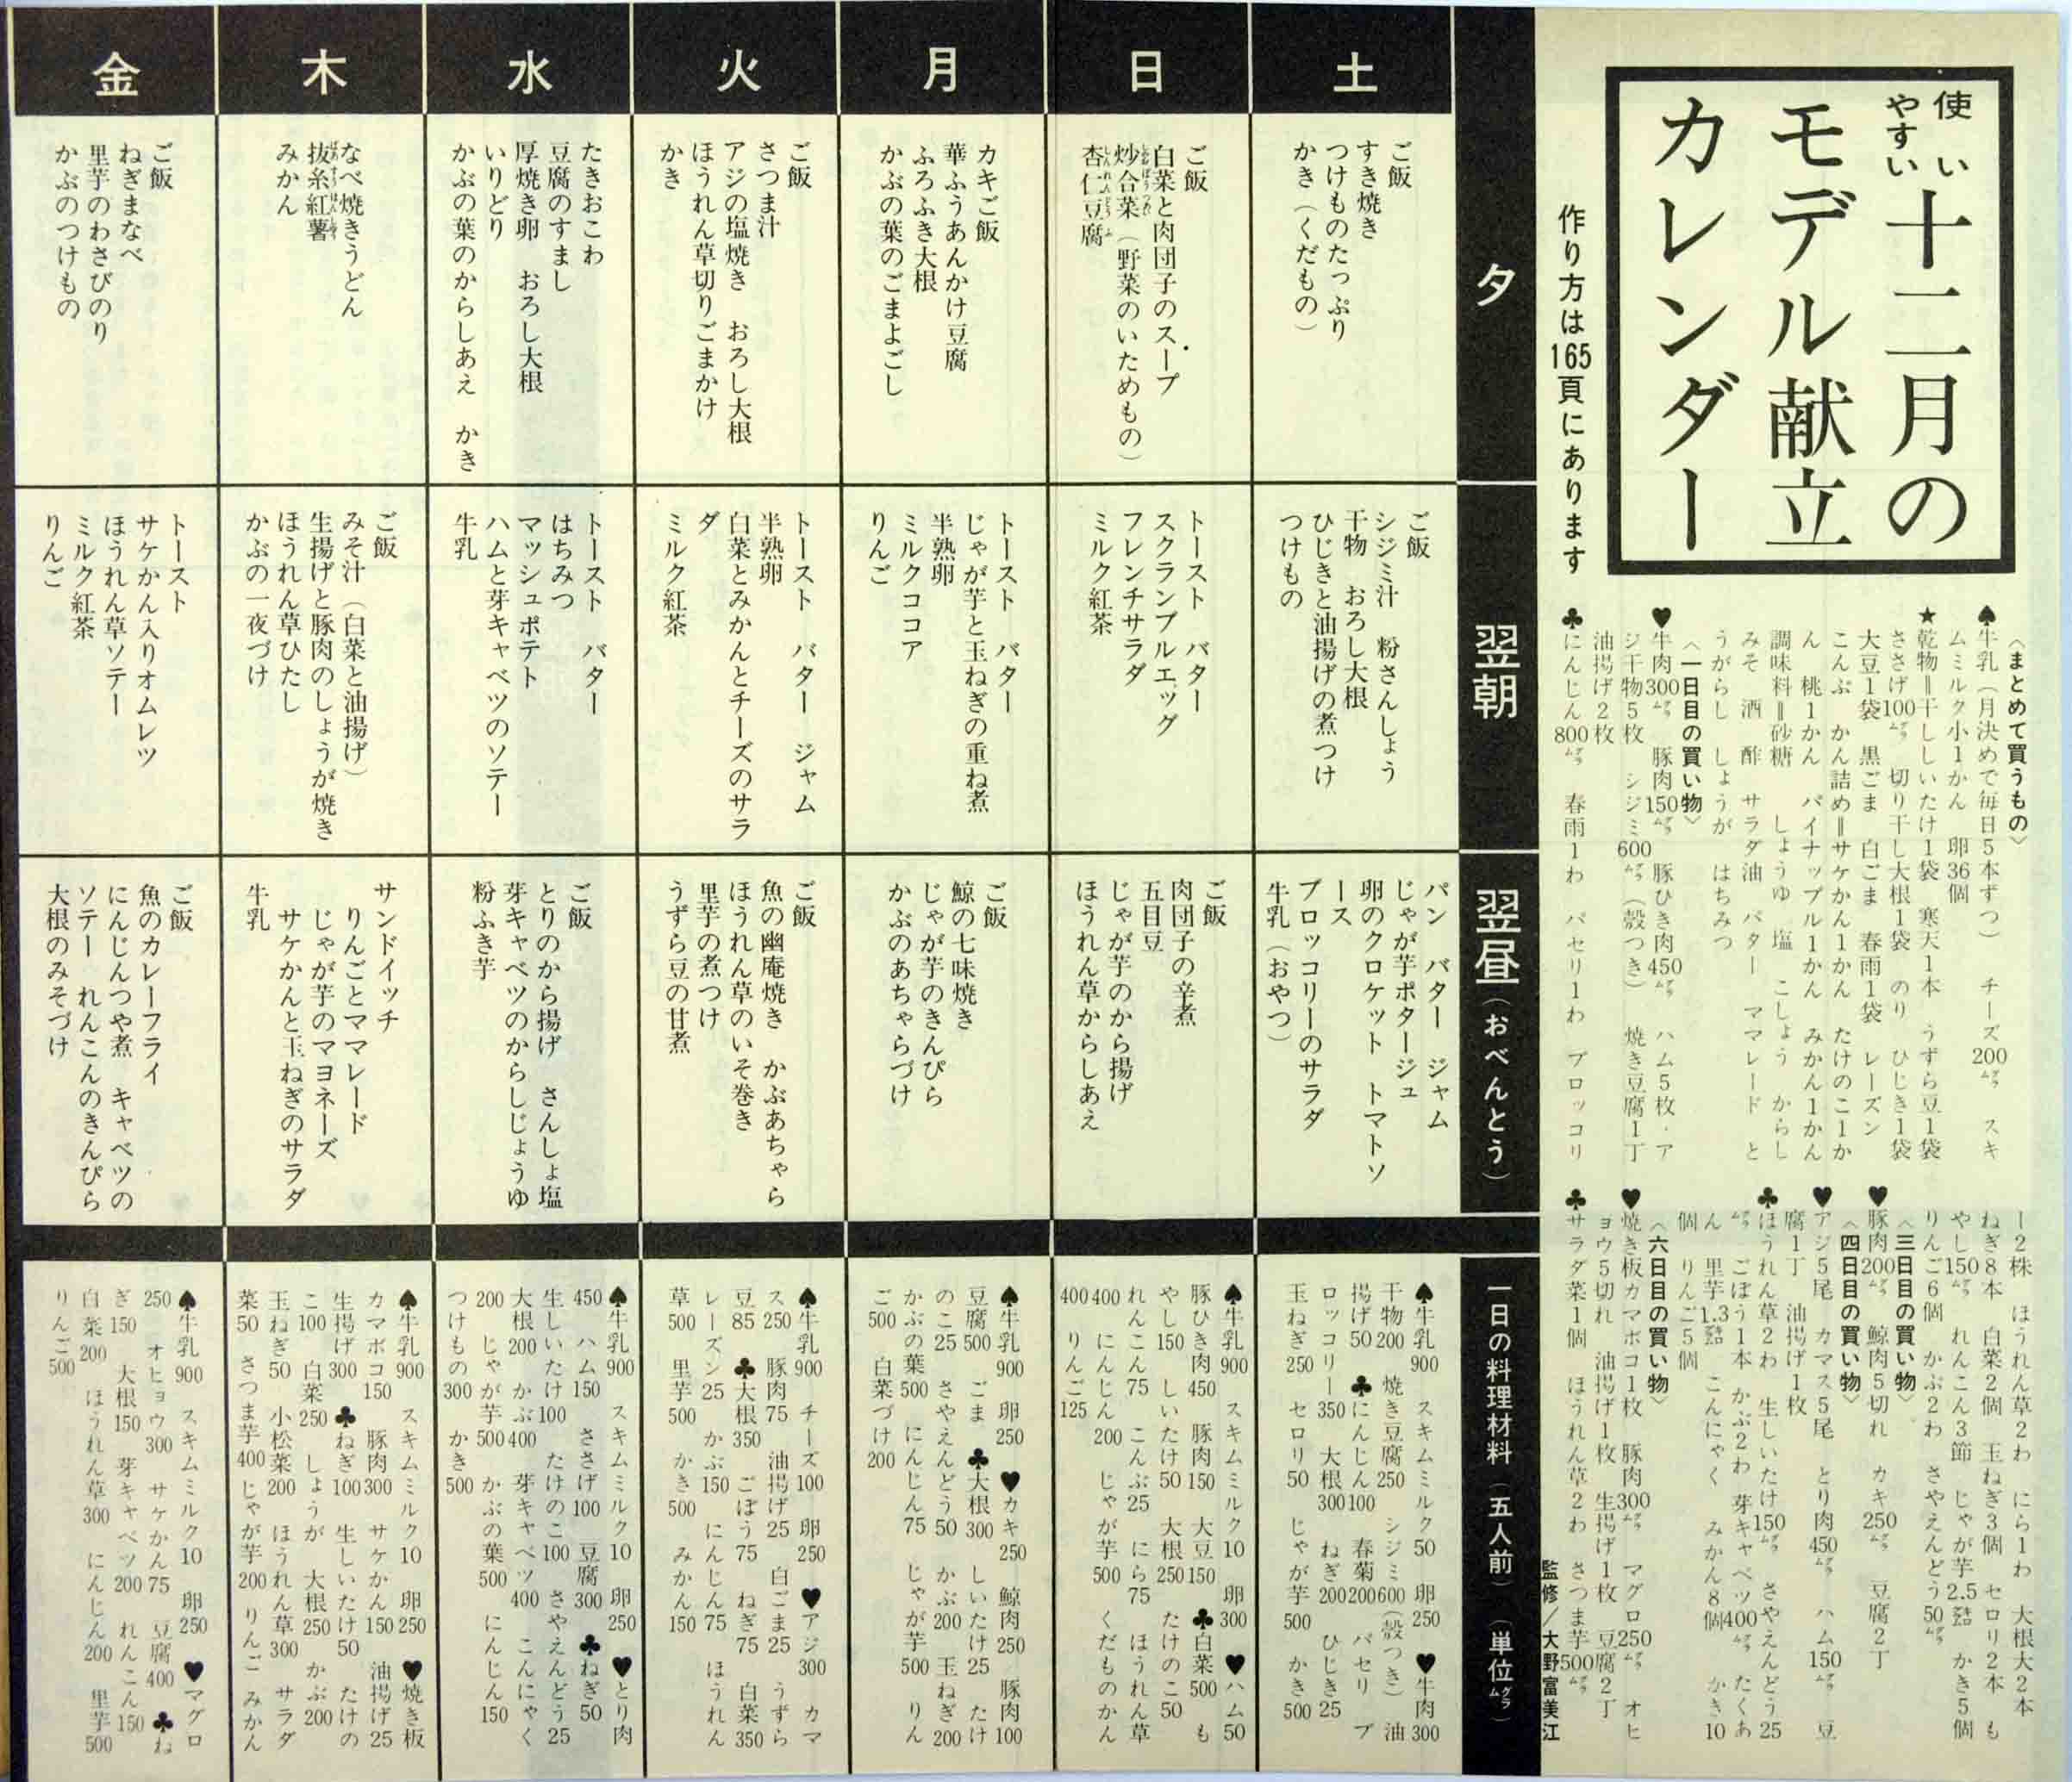 使い
やすい
十二月の
モデル献立
カレンダー
作り方は165頁にあります
〈まとめて買うもの〉
♠牛乳（月決めで毎日5本ずつ）　チーズ200㌘　スキ
ムミルク小1かん　卵36個
★乾物＝干ししいたけ1袋　寒天1本　うずら豆1袋
ささげ100㌘　切り干し大根1袋　のり　ひじき1袋
大豆1袋　黒ごま　白ごま　春雨1袋　レーズン
こんぶ　かん詰め＝サケかん1かん　たけのこ1か
ん　桃1かん　パイナップル1かん　みかん1かん
調味料＝砂糖　しょうゆ　塩　こしょう　からし
みそ　酒　酢　サラダ油　バター　ママレード　と
うがらし　しょうが　はちみつ
〈一日目の買い物〉
♥牛肉300㌘　豚肉150㌘　豚ひき肉450㌘　ハム5枚・ア
ジ干物5枚　シジミ600㌘（殻つき）　焼き豆腐1丁
油揚げ2枚
♣にんじん800㌘　春雨1わ　パセリ1わ　ブロッコリ
ー2株　ほうれん草2わ　にら1わ　大根大2本
ねぎ8本　白菜2個　玉ねぎ3個　セロリ2本　も
やし150㌘　れんこん3節　じゃが芋2.5㌔　かき5個
りんご6個　かぶ2わ　さやえんどう50㌘
〈三日目の買い物〉
♥豚肉200㌘　鯨肉5切れ　カキ250㌘　豆腐2丁
〈四日目の買い物〉
♥アジ5尾　カマス5尾　とり肉450㌘　ハム150㌘　豆
腐1丁　油揚げ1枚
♣ほうれん草2わ　生しいたけ150㌘　さやえんどう25
㌘　ごぼう1本　かぶ2わ　芽キャベツ400㌘　たくあ
ん　里芋1.3㌔　こんにゃく　みかん8個　かき10
個　りんご5個
〈六日目の買い物〉
♥焼き板カマボコ1枚　豚肉300㌘　マグロ250㌘　オヒ
ョウ5切れ　油揚げ1枚　生揚げ1枚　豆腐2丁
♣サラダ菜1個　ほうれん草2わ　さつま芋500㌘
監修／大野富美江
夕
翌朝
翌昼（おべんとう）
一日の料理材料（五人前）（単位㌘）
土
ご飯
すき焼き
つけものたっぷり
かき（くだもの）
ご飯
シジミ汁　粉さんしょう
干物　おろし大根
ひじきと油揚げの煮つけ
つけもの
パン　バター　ジャム
じゃが芋ポタージュ
卵のクロケット　トマトソ
ース
ブロッコリーのサラダ
牛乳（おやつ）
♠牛乳900　スキムミルク50　卵250　♥牛肉300
干物200　焼き豆腐250　シジミ600（殻つき）　油
揚げ50　♣にんじん100　春菊200　パセリ　ブ
ロッコリー350　大根300　ねぎ200　ひじき25
玉ねぎ250　セロリ50　じゃが芋500　かき500
日
ご飯
白菜と肉団子のスープ
炒合菜（野菜のいためもの）
杏仁豆腐
トースト　バター
スクランブルエッグ
フレンチサラダ
ミルク紅茶
ご飯
肉団子の辛煮
五目豆
じゃが芋のから揚げ
ほうれん草からしあえ
♠牛乳900　スキムミルク10　卵300　♥ハム50
豚ひき肉450　豚肉150　大豆150　♣白菜500　も
やし150　しいたけ50　大根250　たけのこ50
れんこん75　こんぶ25　にら75　ほうれん草
400　にんじん200　じゃが芋500　くだものかん
400　りんご125
月
カキご飯
華ふうあんかけ豆腐
ふろふき大根
かぶの葉のごまよごし
トースト　バター
じゃが芋と玉ねぎの重ね煮
半熟卵
ミルクココア
りんご
ご飯
鯨の七味焼き
じゃが芋のきんぴら
かぶのあちゃらづけ
♠牛乳900　卵250　♥カキ250　鯨肉250　豚肉100
豆腐500　ごま　♣大根300　しいたけ25　たけ
のこ25　さやえんどう50　かぶ200　玉ねぎ200
かぶの葉500　にんじん75　じゃが芋500　りん
ご500　白菜づけ200
火
ご飯
さつま汁
アジの塩焼き　おろし大根
ほうれん草切りごまかけ
かき
トースト　バター　ジャム
半熟卵
白菜とみかんとチーズのサラ
ダ
ミルク紅茶
ご飯
魚の幽庵焼き　かぶあちゃら
ほうれん草のいそ巻き
里芋の煮つけ
うずら豆の甘煮
♠牛乳900　チーズ100　卵250　♥アジ300　カマ
ス250　豚肉75　油揚げ25　白ごま25　うずら
豆85　♣大根350　ごぼう75　ねぎ75　白菜350
レーズン25　かぶ150　にんじん75　ほうれん
草500　里芋500　かき500　みかん150
水
たきおこわ
豆腐のすまし
厚焼き卵　おろし大根
いりどり
かぶの葉のからしあえ　かき
トースト　バター
はちみつ
マッシュポテト
ハムと芽キャベツのソテー
牛乳
ご飯
とりのから揚げ　さんしょ塩
芽キャベツのからしじょうゆ
粉ふき芋
♠牛乳900　スキムミルク10　卵250　♥とり肉
450　ハム150　ささげ100　豆腐300　♣ねぎ50
生しいたけ100　たけのこ100　さやえんどう25
大根200　かぶ400　芽キャベツ400　こんにゃく
200　じゃが芋500　かぶの葉500　にんじん150
つけもの300　かき500
木
なべ焼きうどん
抜糸紅薯
みかん
ご飯
みそ汁（白菜と油揚げ）
生揚げと豚肉のしょうが焼き
ほうれん草ひたし
かぶの一夜づけ
サンドイッチ
りんごとママレード
じゃが芋のマヨネーズ
サケかんと玉ねぎのサラダ
牛乳
♠牛乳900　スキムミルク10　卵250　♥焼き板
カマボコ150　豚肉300　サケかん150　油揚げ25
生揚げ300　♣ねぎ100　生しいたけ50　たけの
こ100　白菜250　しょうが　大根250　かぶ200
玉ねぎ50　小松菜200　ほうれん草300　サラダ
菜50　さつま芋400　じゃが芋200　りんご　みかん
金
ご飯
ねぎまなべ
里芋のわさびのり
かぶのつけもの
トースト
サケかん入りオムレツ
ほうれん草ソテー
ミルク紅茶
りんご
ご飯
魚のカレーフライ
にんじんつや煮　キャベツの
ソテー　れんこんのきんぴら
大根のみそづけ
♠牛乳900　スキムミルク10　卵250　♥マグロ
250　オヒョウ300　サケかん75　豆腐400　♣ね
ぎ150　大根150　芽キャベツ200　れんこん150
白菜200　ほうれん草300　にんじん200　里芋500
りんご500